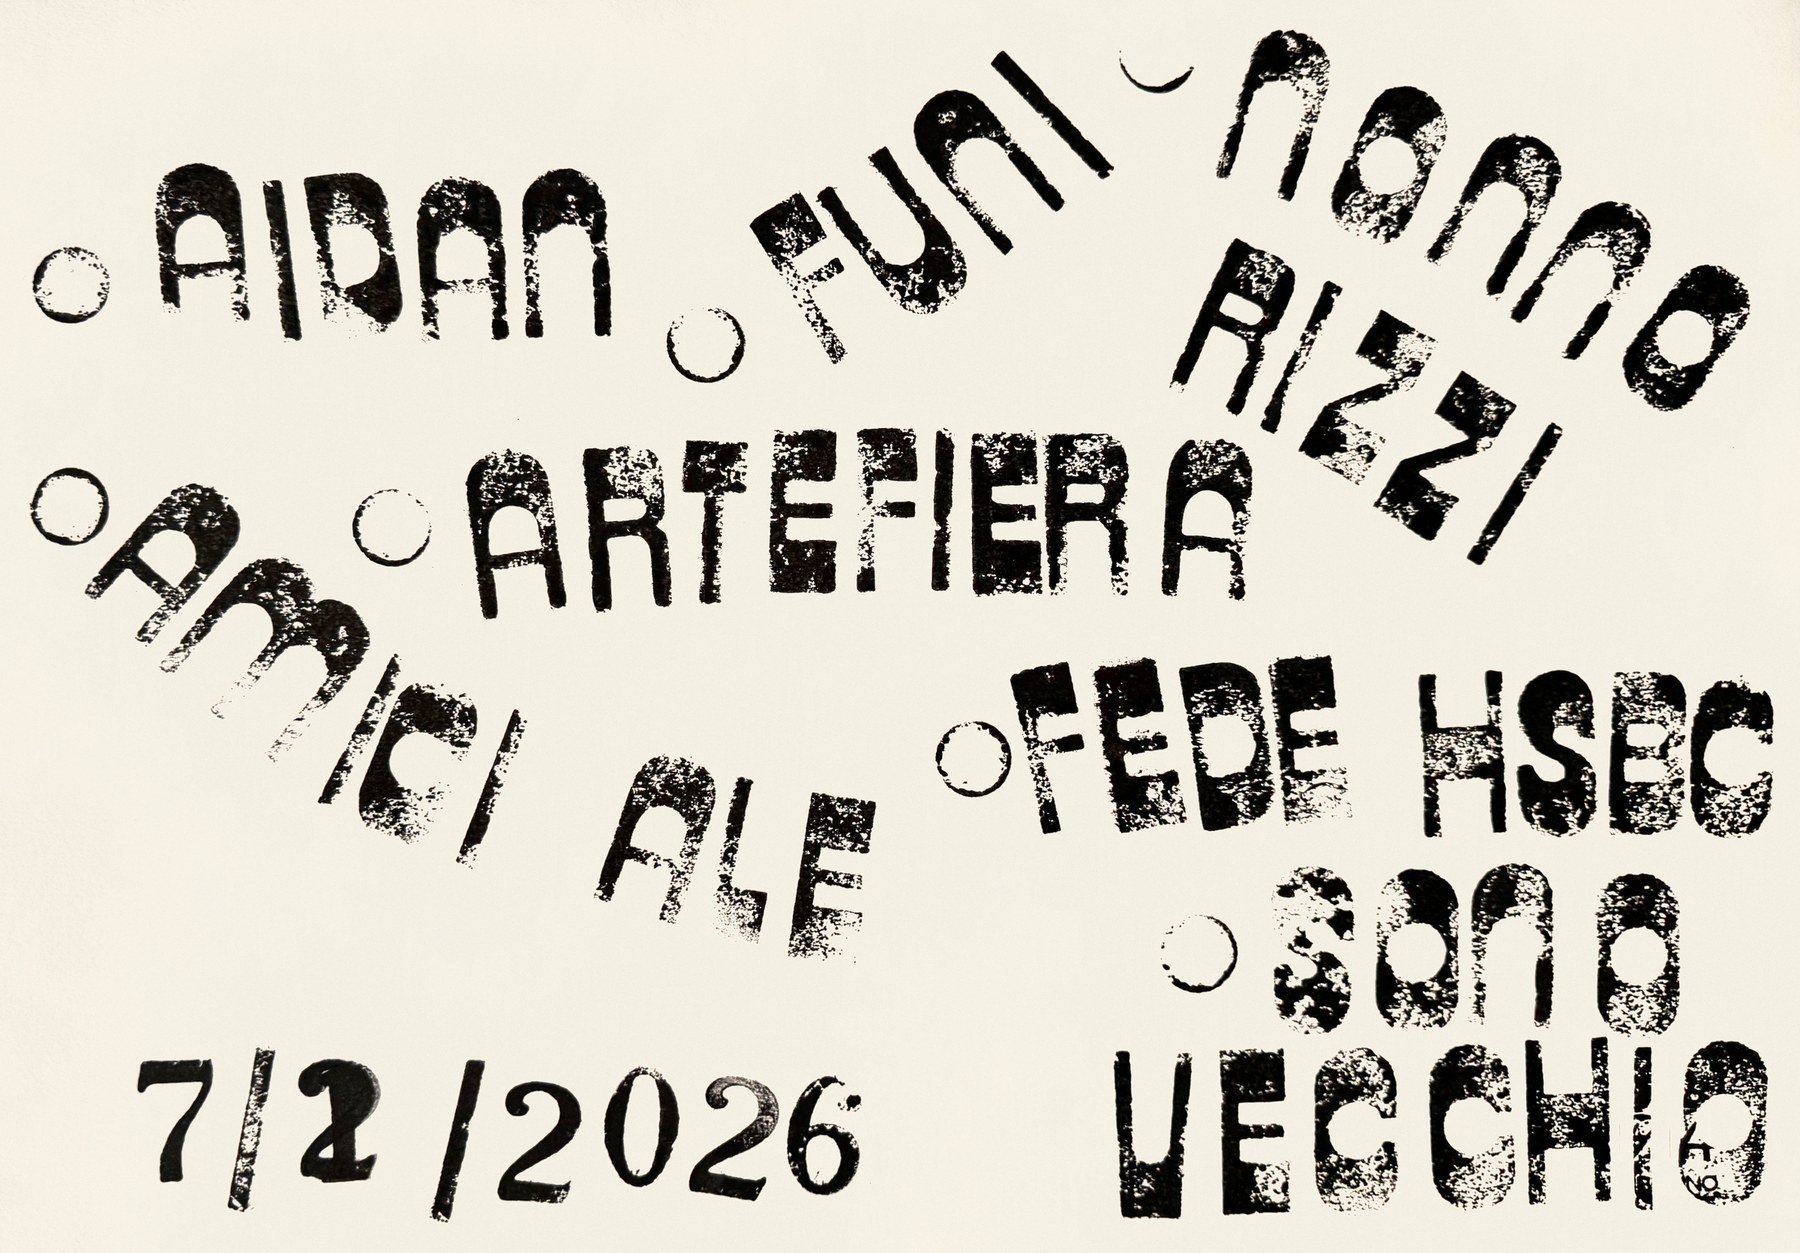 AIDAN
FUNI
NONNO
RIZZI
ARTEFIERA
AMICI ALE
FEDE HSBC
SONO
VECCHIO
7/2/2026